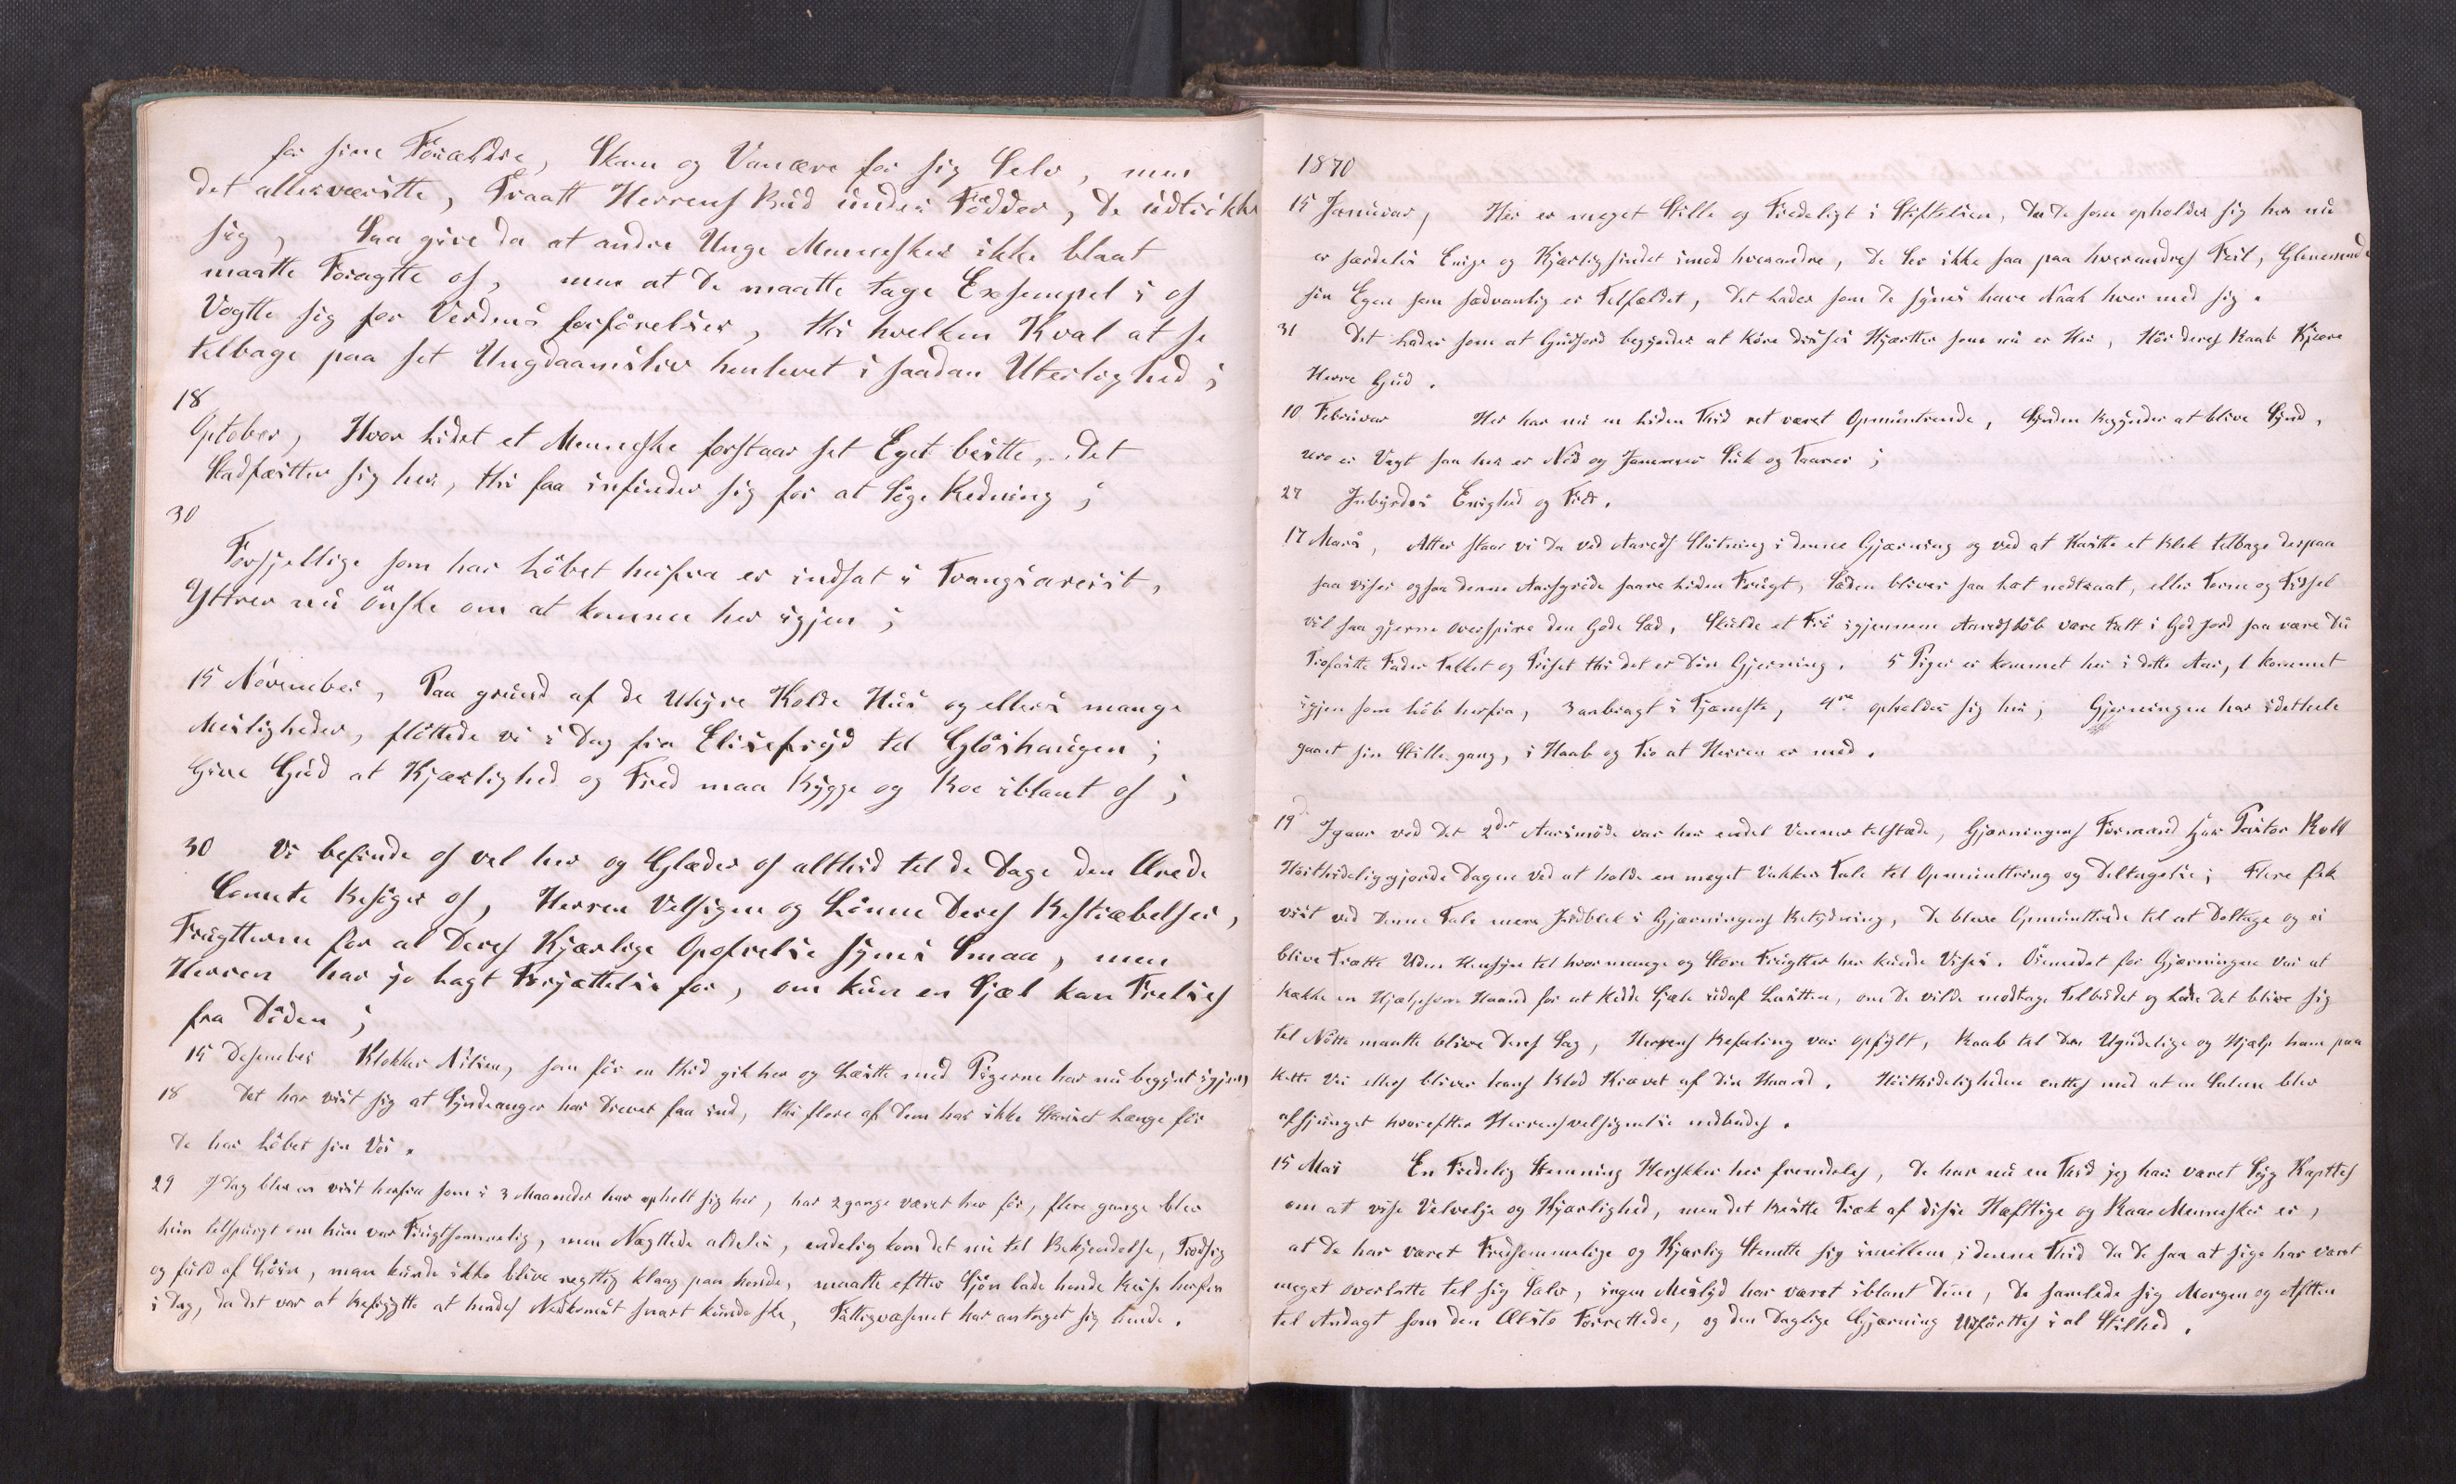 for sine Forældre, Skam og Vanære for sig Selv, men
det allerværste, Traatt Herrens Bud under Födder, de udtrikke
sig, Saa give da at andre Unge Mennesker ikke blaat
maatte Foragtte os, men at de maatte tage Exsempel i os
Vogtte sig for Verdens forförelser, thi hvelken Kval at se
telbage paa set Ungdaamsliv henlevet i saadan Uteilighed ;
18
Optober, Hvor Lidet et Menneske forstaar set Eget beste, det
Stadfæstter sig her, thi faa infinder sig for at Söge Redning ;
30
Forsjellige som har Löbet herfra er indsat i Tvangsareist,
Yttrer nu önske om at komme her igjen ;
15 November, Paa grund af de Uhyre Kolde Hus og ellers mange
Mesligheder, flöttede vi i Dag fra Elisefryd tel Glöshaugen ;
Give Gud at Kjærlighed og Fred maa Bygge og Boe iblant os ;
30 Vi befinde os vel her og Glæder os althid tel de Dage den Ærede
Comete Besöger os, Herren Velsigne og Lönne Deres Bestræbelser,
Frugtterne for al Deres Kjærlige Opofrelse synes Smaa, men
Herren har jo Lagt Forjættelse for, om kun en Sjæl kan Frelses
fra Döden ;
15 Desember Klokker Nilsen, som för en Thid gik her og Læste med Pigerne har nu begynt igjen,
18 Det har vist sig at Syndeanger har Drevet faa ind, thi flere af dem har ikke Stanset Længe för
de har Löbet sin Vei.
29 I Dag blev en vist herfra som i 3 Maaneder har opholt sig her, har 2 gange været her för, flere gange blev
hun telspurgt om hun var Frugtsommelig, men Nægttede aldeles, endelig kom det nu tel Bekjendelse, Trodsig
og fuld af Lögn, man kunde ikke blive negttig klaag paa hende, maatte eftter Sjön lade hende Reise herfra
i Dag, da det var at befrygtte at hendes Nedkomst snart kunde ske, Fattigvæsenet har antaget sig hende.
1870
15 Januar, Her er meget Stille og Fredeligt i Stiftelsen, da de som opholder sig her nu
er særdeles Enige og Kjærligsindet imod hverandre, de Ser ikke saa paa hverandres Feil,
sin Egen som sædvanlig er Telfældet, det Lader som de synes have Naak hver med sig.
31 Det Lader som at Gudsord begynder at köre disses Hjærtter som nu er Her, Hör deres Raab Kjære
Herre Gud.
10 Februar Her har nu en Liden Thid ret været Opmuntrende, Synden Begynder at blive Synd,
ver Vagt saa her er Nöd og Jammer Suk og Taarer ;
27 Inbyrdes Enighed og Fred.
17 Mars, Atter staar vi da ved Aarets Slutning i denne Gjærning og ved at Kaste et Blik telbage derpaa
saa viser ogsaa denne Aarsgröde saare Liden Frugt, Sæden bliver saa Let nedtraat, eller Torne og Tidsel
vil saa gjerne overspire den Gode Sæd, Skulde et Frö igjennem Aaretslöb være Falt i God Jord saa være Du
Trofaste Fader Takket og Priset thi det er Din Gjerning. 5 Piger er kommet her i dette Aar, 1 kommet
igjen som löb herfra, 3 anbragt i Tjæneste, 4re opholder sig her ; Gjerningen har idethele
gaaet sin Stille gang, i Haab og Tro at Herren er med.
19de Igaar ved det 2det Aarsmöde var her endel Venner telstæde, Gjærningens Formand Hær Pastor Roll
Höithideliggjorde Dagen ved at holde en meget Vakker Tale tel Opmuntring og Deltagelse ; Flere fik
vist ved Denne Tale mere Indblik i Gjærningens Betydning, De bleve Opmuntrede tel at Deltage og ei
blive Trætte Uden Hensyn tel hvormange og Store Frugtter her kunde Vises. Öiemedet for Gjærningen var at
Række en Hjælpsom Haand for at Redde Sjæle udaf Lasten, om de vilde modtage Telbudet og Lade det blive sig
tel Nötte maatte blive Deres Sag, Herrens Befaling var opfylt, Raab tel den Ugudelige og Hjælp ham paa
Rette Vei ellers bliver hans Blod Krævet af din Haand. Höithideligheden enttes med at en Salme blev
afsjunget hvoreftter Herrensvelsignelse nedbades.
15 Mai En Fredelig Stemning Hersker her fremdeles, De har nu en Thid jeg har været Syg Kapttes
om at vise Velvelje og Kjærlighed, men det beste Træk af disse Hæfttige og Raae Mennesker er,
at de har været Fredsommelige og Kjærlig Stemtte sig imellem i denne Thid da de saa at sige har været
meget overlatte tel sig Selv, ingen Meslyd har været iblant Dem, De samlede sig Morgen og Aftten
tel Andagt som den Ælste Forrettede, og den Daglige Gjærning Udförttes i al Stilhed.